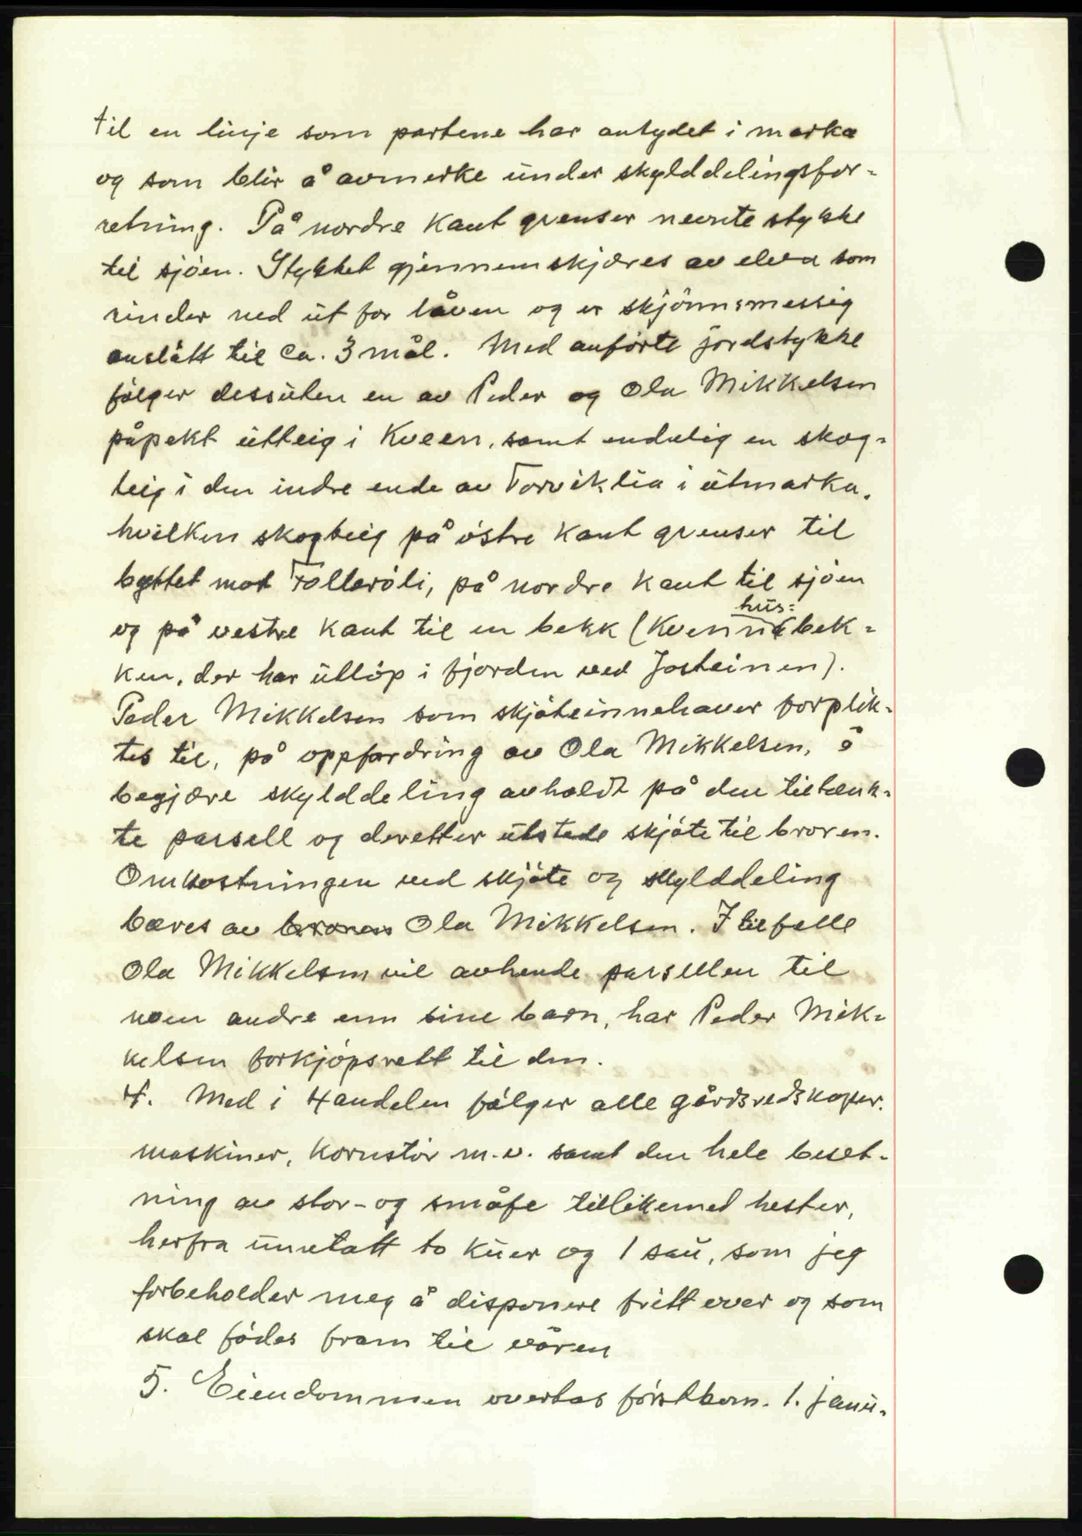 til en linje som partene har antydet i marka
og som blir å avmerke under skylddelingsfor-
retning. På nordre kant grenser nevnte stykke
til sjøen. Stykket gjennemskjæres av elva som
rinder ned ut for låven og er skjønnsmessig
anslått til ca. 3 mål. Med anførte jordstykke
følger dessuten en av Peder og Ola Mikkelsen
påpekt utteig i Kveen, samt endelig en skog-
teig i den indre ende av Torviklia i utmarka,
hvilken skogteig på østre kant grenser til
byttet mot Tallerøli, på nordre kant til sjøen
hus-
og på vestre kant til en bekk (Kvennabek-
ken, der har utløp i fjorden ved Josteinen).
Peder Mikkelsen som skjøteinnehaver forplik-
tes til, på oppfordring av Ola Mikkelsen, å
begjære skylddeling avholdt på den tiltænk-
te parsell og deretter utstede skjøte til broren.
Omkostningen ved skjøte og skylddeling
bæres av broren Ola Mikkelsen. I tilfelle
Ola Mikkelsen vil avhende parsellen til
noen andre enn sine barn, har Peder Mik-
kelsen forkjøpsrett til den.
4. Med i Handelen følger alle gårdsredskaper,
maskiner, kornstør m.v. samt den hele beset-
ning av stor- og småfe tillikemed hester,
herfra unntatt to kuer og 1 sau, som jeg
forbeholder meg å disponere fritt over og som
skal fødes fram til våren
5. Eiendommen overtas førstkom. 1. janu-